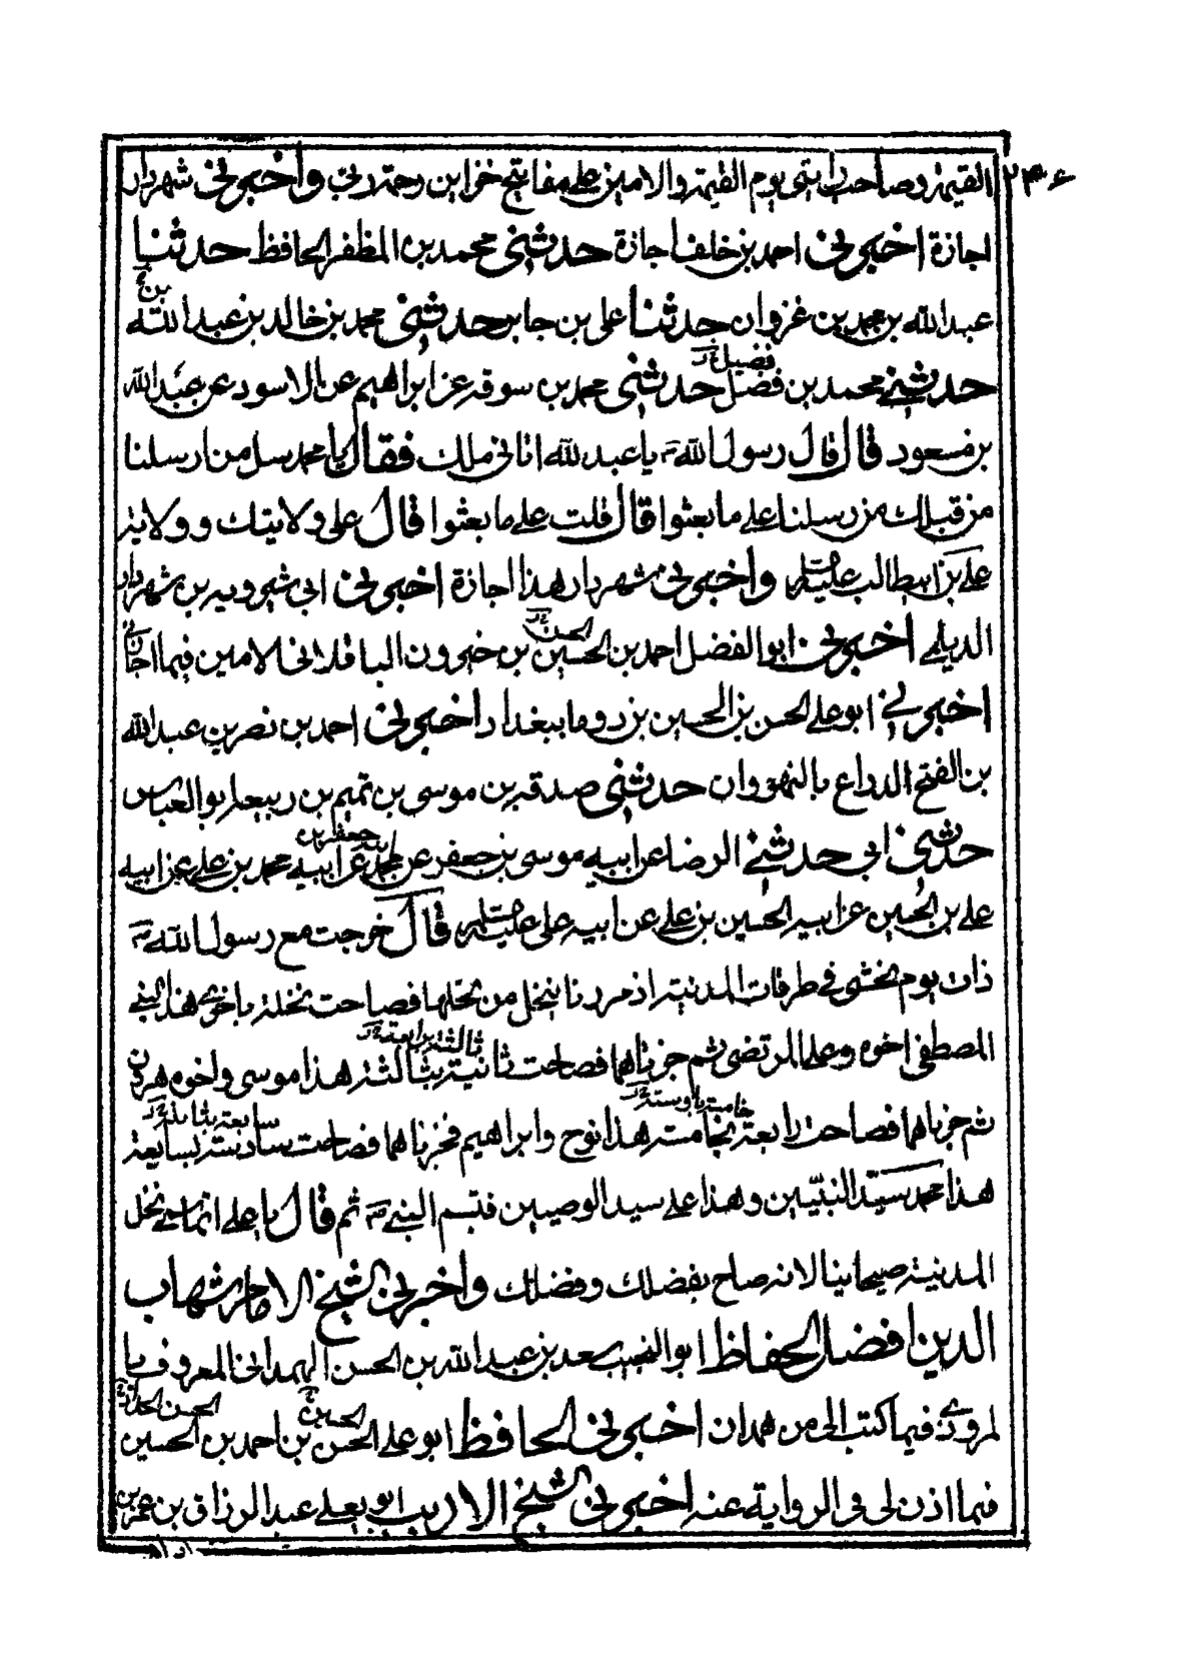 القيمة وصاحب رايتى يوم القيمة والامين على مفاتيح خزاين رحمة ربى واخبرنى شهردار ٢٣۶
اجازة اخبرنى احمد بن خلف اجازة حدثنى محمد بن المظفر الحافظ حدثنا
عبدالله بن محمد بن غزوان حدثنا على بن جابر حدثنى محمد بن خالد بن عبدالله
حدثنى محمد بن فضل حدثنى محمد بن سوقه عن ابراهيم عن الاسود عن عبدالله
بن مسعود قال قال رسول الله ص يا عبد الله اتانى ملك فقال يا محمد سل من ارسلنا
من قبلك من رسلنا على ما بعثوا قال قلت على ما بعثوا قال على ولايتك وولاية
على بن ابيطالب عليه واخبرنى شهردار هذا اجازة اخبرنى ابى شيرويه بن شهردار
الديلمى اخبرنى ابو الفضل احمد بن الحسين بن خيرون الباقلانى الامين فيما اجازنى
اخبرنى ابو على الحسن بن الحسين بن دوما ببغداد اخبرنى احمد بن نصر بن عبدالله
بن الفتح الدراع بالنهروان حدثنى صدقه بن موسى بن تميم بن ربيعه ابو العباس
حدثنى ابى حدثنى الرضا عن ابيه موسى بن جعفر عن ابيه محمد بن على عن ابيه
على بن الحسين عن ابيه الحسين بن على عن ابيه على عليه قال خرجت مع رسول الله ص
ذات يوم نمشى فى طرقات المدينة اذ مررنا بنخل من نخلها فصاحت نخلة باخرى هذا النبى
المصطفى اخوه وعلى المرتضى ثم جزناهما فصاحت ثانية بثالثة هذا موسى واخوه هرون
ثم جزناهما فصاحت رابعة بخامسة هذا نوح وابراهيم فجزناهما فصاحت سادسة بسابعة
هذا محمد سيد النبيين وهذا على سيد الوصيين فتبسم النبى ص ثم قال يا على انما سمى نخل
المدينة صيحانيا لانه صاح بفضلك وفضلك واخبرنى الشيخ الامام شهاب
الدين افضل الحفاظ ابو النجيب سعد بن عبدالله بن الحسن الهمدانى المعروف با
لمروزى فيما كتب الى من همدان اخبرنى الحافظ ابو على الحسن بن احمد بن الحسين
فيما اذن لى فى الرواية عنه اخبرنى الشيخ الاريب ابو يعلى عبد الرزاق بن عمر بن